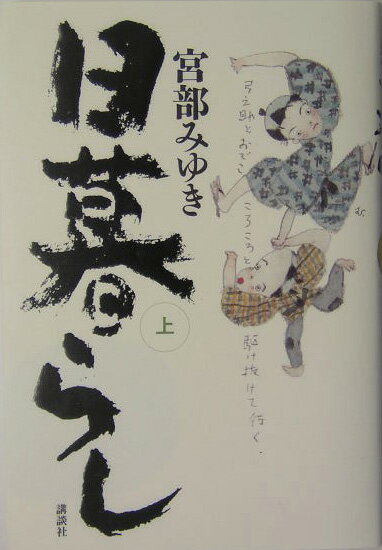 弓之助とおでこ
ころころと
駆け抜けて行く.
む
宮部みゆき
日暮らし
上
講談社